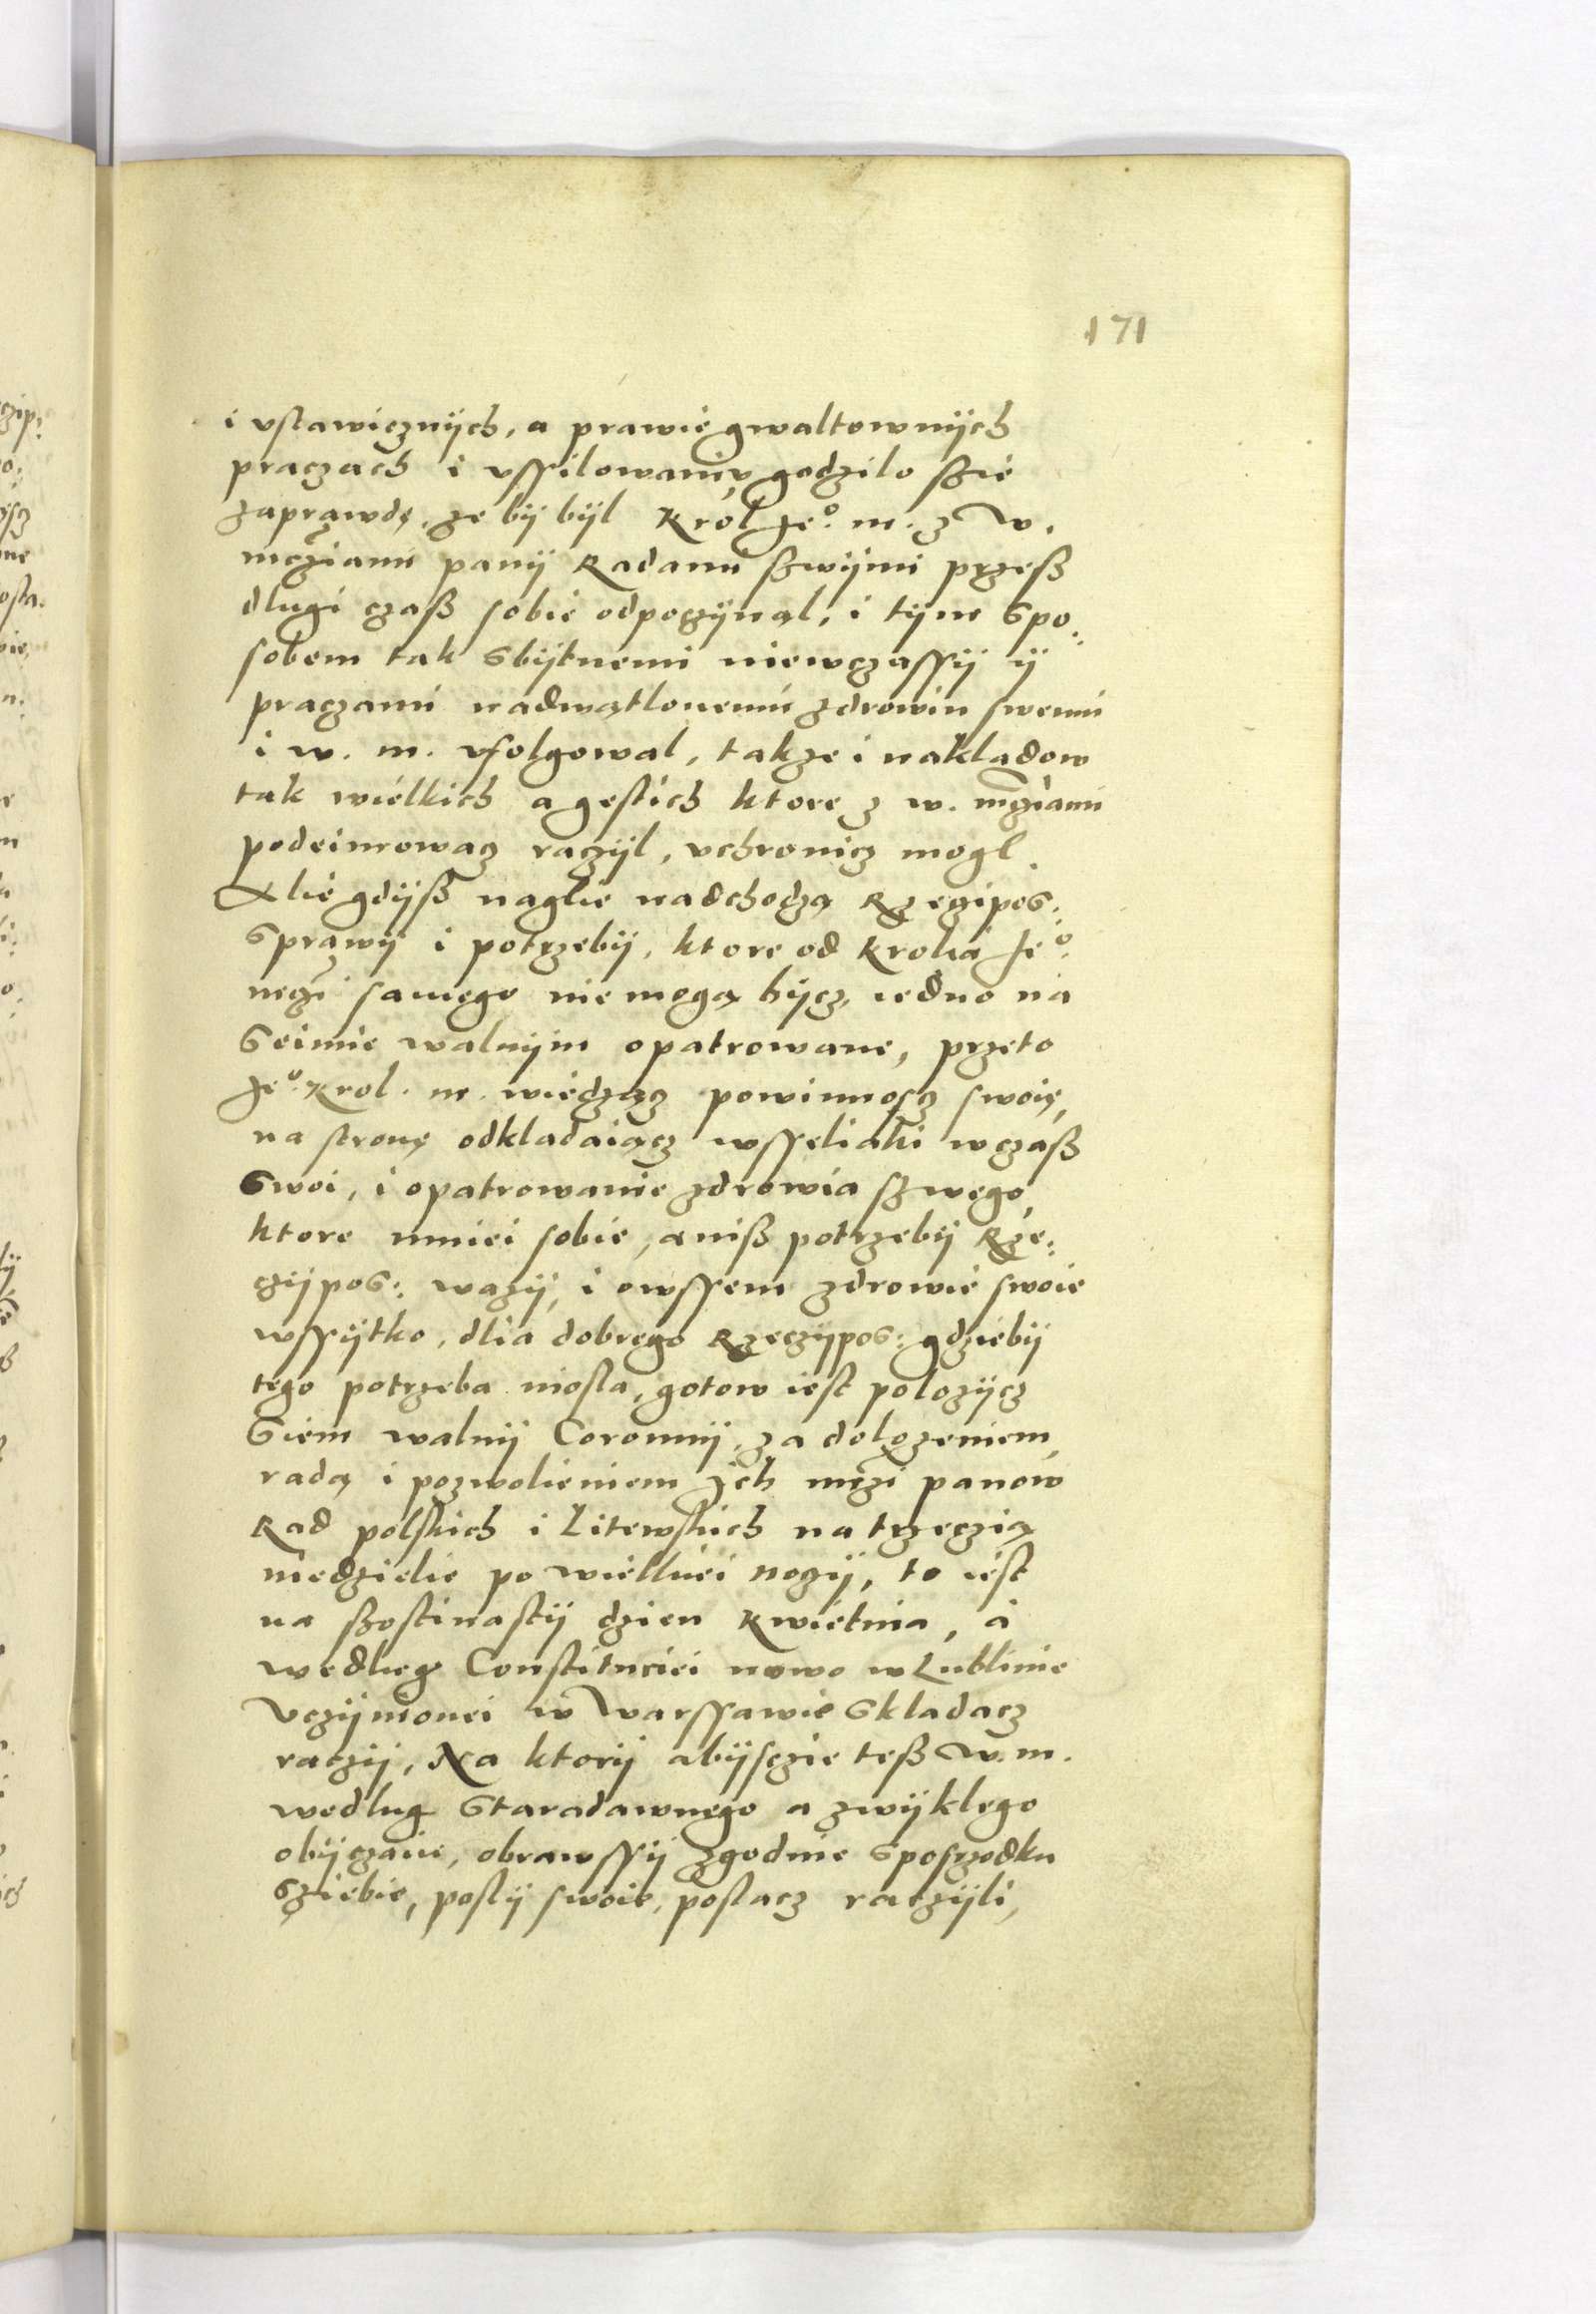 171
i vstawicznÿch, a prawie gwaltownÿch
praczach i vssilowaniv godzilo szie
zaprawdę, ze bÿ bÿl Król Je&ordm; m. z W.
mcziami panÿ Radami szwÿmi przesß
dlugi czaß sobie odpoczÿnal, i tÿm spo:
sobem tak sbÿtnemi niewczassÿ ÿ
praczami nadwątlonemu zdrowiu swemu
i w. m. vfolgowal, takze i nakladow
tak wielkich a gęstich ktore z w. mcziami
podeimowacz raczÿl, vchronicz mogl.
Alie gdÿß naglie nadchodzą Rzeczipos:
sprawÿ i potrzebÿ, ktore od Krolia Je&ordm;
mczi samego nie mogą bÿcz, iedno na
Seimie walnÿm opatrowane, przeto
Je&ordm; Krol. m. wiedzącz powinnoscz swoię,
na stronę odkladaiącz wsseliaki wczaß
swoi, i opatrowanie zdrowia szwego,
ktore mniei sobie, aniß potrzebÿ Rze:
czÿpos: wazÿ, i owssem zdrowie swoie
wssÿtko, dlia dobrego Rzeczÿpos: gdziebÿ
tego potrzeba niosla, gotow iest polozÿcz
Siem walnÿ Coronnÿ, za dolozeniem,
radą i pozwolieniem Ich mczi panów
Rad polskich i Litewskich na trzeczią
niedzielie po wielkiei noczÿ, to iest
na szostinastÿ dzien Kwietnia, a
wedlug Constituciei nowo w Lublinie
vczÿnionei w Warssawie skladacz
raczÿ, Na ktorÿ abÿsczie teß W. m.
wedlug staradawnego a zwÿklego
obÿczaiu, obrawssÿ zgodnie sposrzodku
sziebie, poslÿ swoie, poslacz raczÿli,